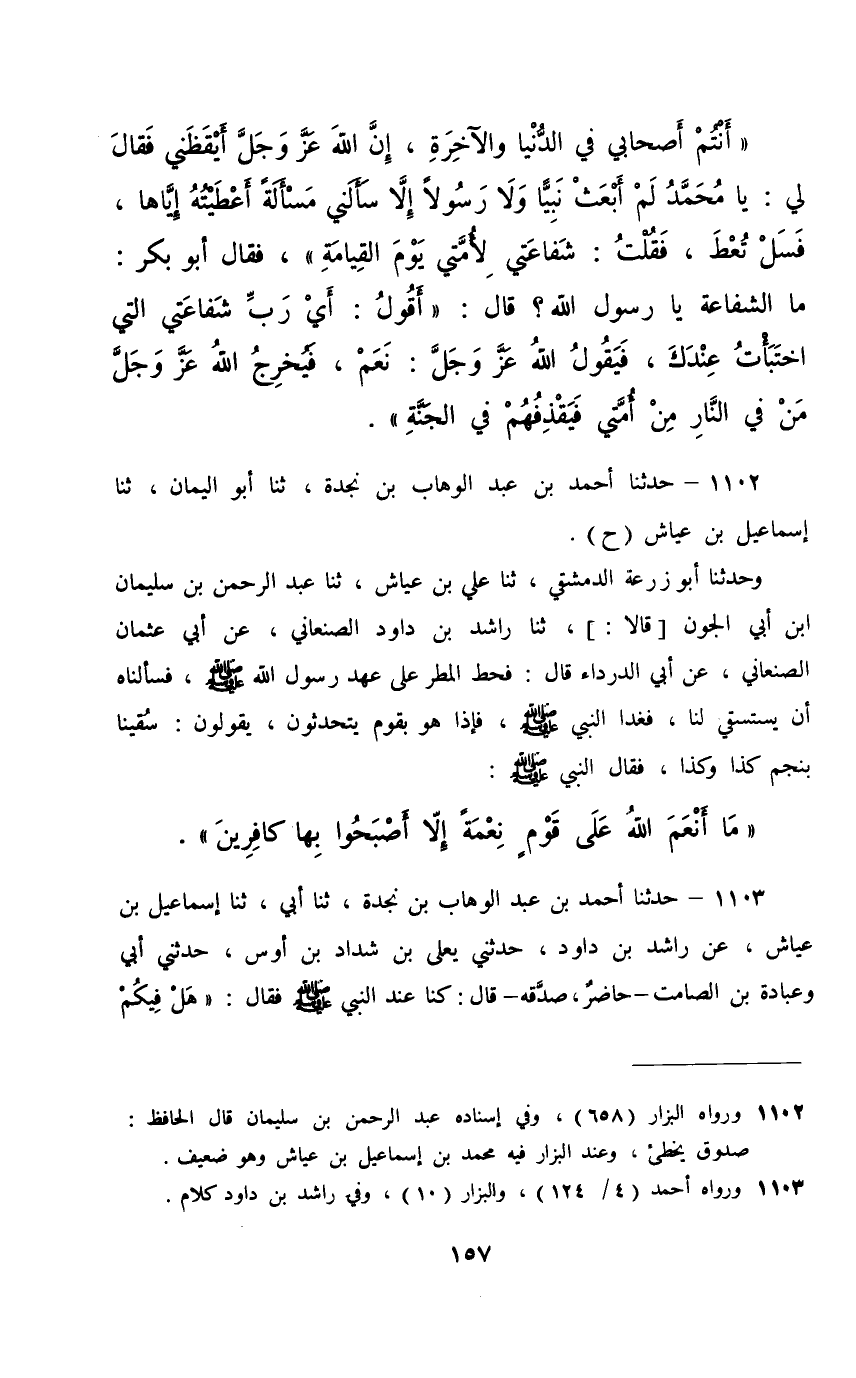 « أَنْتُمْ أَصحابي في الدُّنْيا والآخِرَةِ ، إِنَّ اللهَ عَزَّ وَجَلَّ أَيْقَظَني فَقالَ
لي : يا مُحَمَّدُ لَمْ أَبْعَثْ نَبِيًّا وَلَا رَسُولاً إِلَّا سَأَلَني مَسْأَلَةً أَعْطَيْتُهُ إِيَّاها ،
فَسَلْ تُعْطَ ، فَقُلْتُ : شَفاعَتي لِأُمَّتي يَوْمَ القِيامَةِ » ، فقال أبو بكر :
ما الشفاعة يا رسول الله؟ قال : « أَقُولُ : أَيْ رَبِّ شَفاعَتي التي
اختَبَأْتُ عِنْدَكَ ، فَيَقُولُ اللهُ عَزَّ وَجَلَّ : نَعَمْ ، فَيُخرِجُ اللهُ عَزَّ وَجَلَّ
مَنْ في النَّارِ مِنْ أُمَّتي فَيَقْذِفُهُمْ في الجَنَّةِ » .
١١٠٢ – حدثنا أحمد بن عبد الوهاب بن نجدة ، ثنا أبو اليمان ، ثنا
إسماعيل بن عياش (ح) .
وحدثنا أبو زرعة الدمشقي ، ثنا علي بن عياش ، ثنا عبد الرحمن بن سليمان
ابن أبي الجون [ قالا : ] ، ثنا راشد بن داود الصنعاني ، عن أبي عثمان
الصنعاني ، عن أبي الدرداء قال : قحط المطر على عهد رسول الله ﷺ ، فسألناه
أن يستسقي لنا ، فغدا النبي ﷺ ، فإذا هو بقوم يتحدثون ، يقولون : سُقينا
بنجم كذا وكذا ، فقال النبي ﷺ :
« مَا أَنْعَمَ اللهُ عَلَى قَوْمٍ نِعْمَةً إِلّا أَصْبَحُوا بِها كافِرِينَ » .
١١٠٣ – حدثنا أحمد بن عبد الوهاب بن نجدة ، ثنا أبي ، ثنا إسماعيل بن
عياش ، عن راشد بن داود ، حدثني يعلى بن شداد بن أوس ، حدثني أبي
وعبادة بن الصامت – حاضرٌ ، صدَّقه – قال : كنا عند النبي ﷺ فقال : « هَلْ فِيكُمْ
١١٠٢ ورواه البزار (٦٥٨) ، وفي إسناده عبد الرحمن بن سليمان قال الحافظ :
صدوق يخطئ ، وعند البزار فيه محمد بن إسماعيل بن عياش وهو ضعيف .
١١٠٣ ورواه أحمد (٤/ ١٢٤) ، والبزار (١٠) ، وفي راشد بن داود كلام .
١٥٧